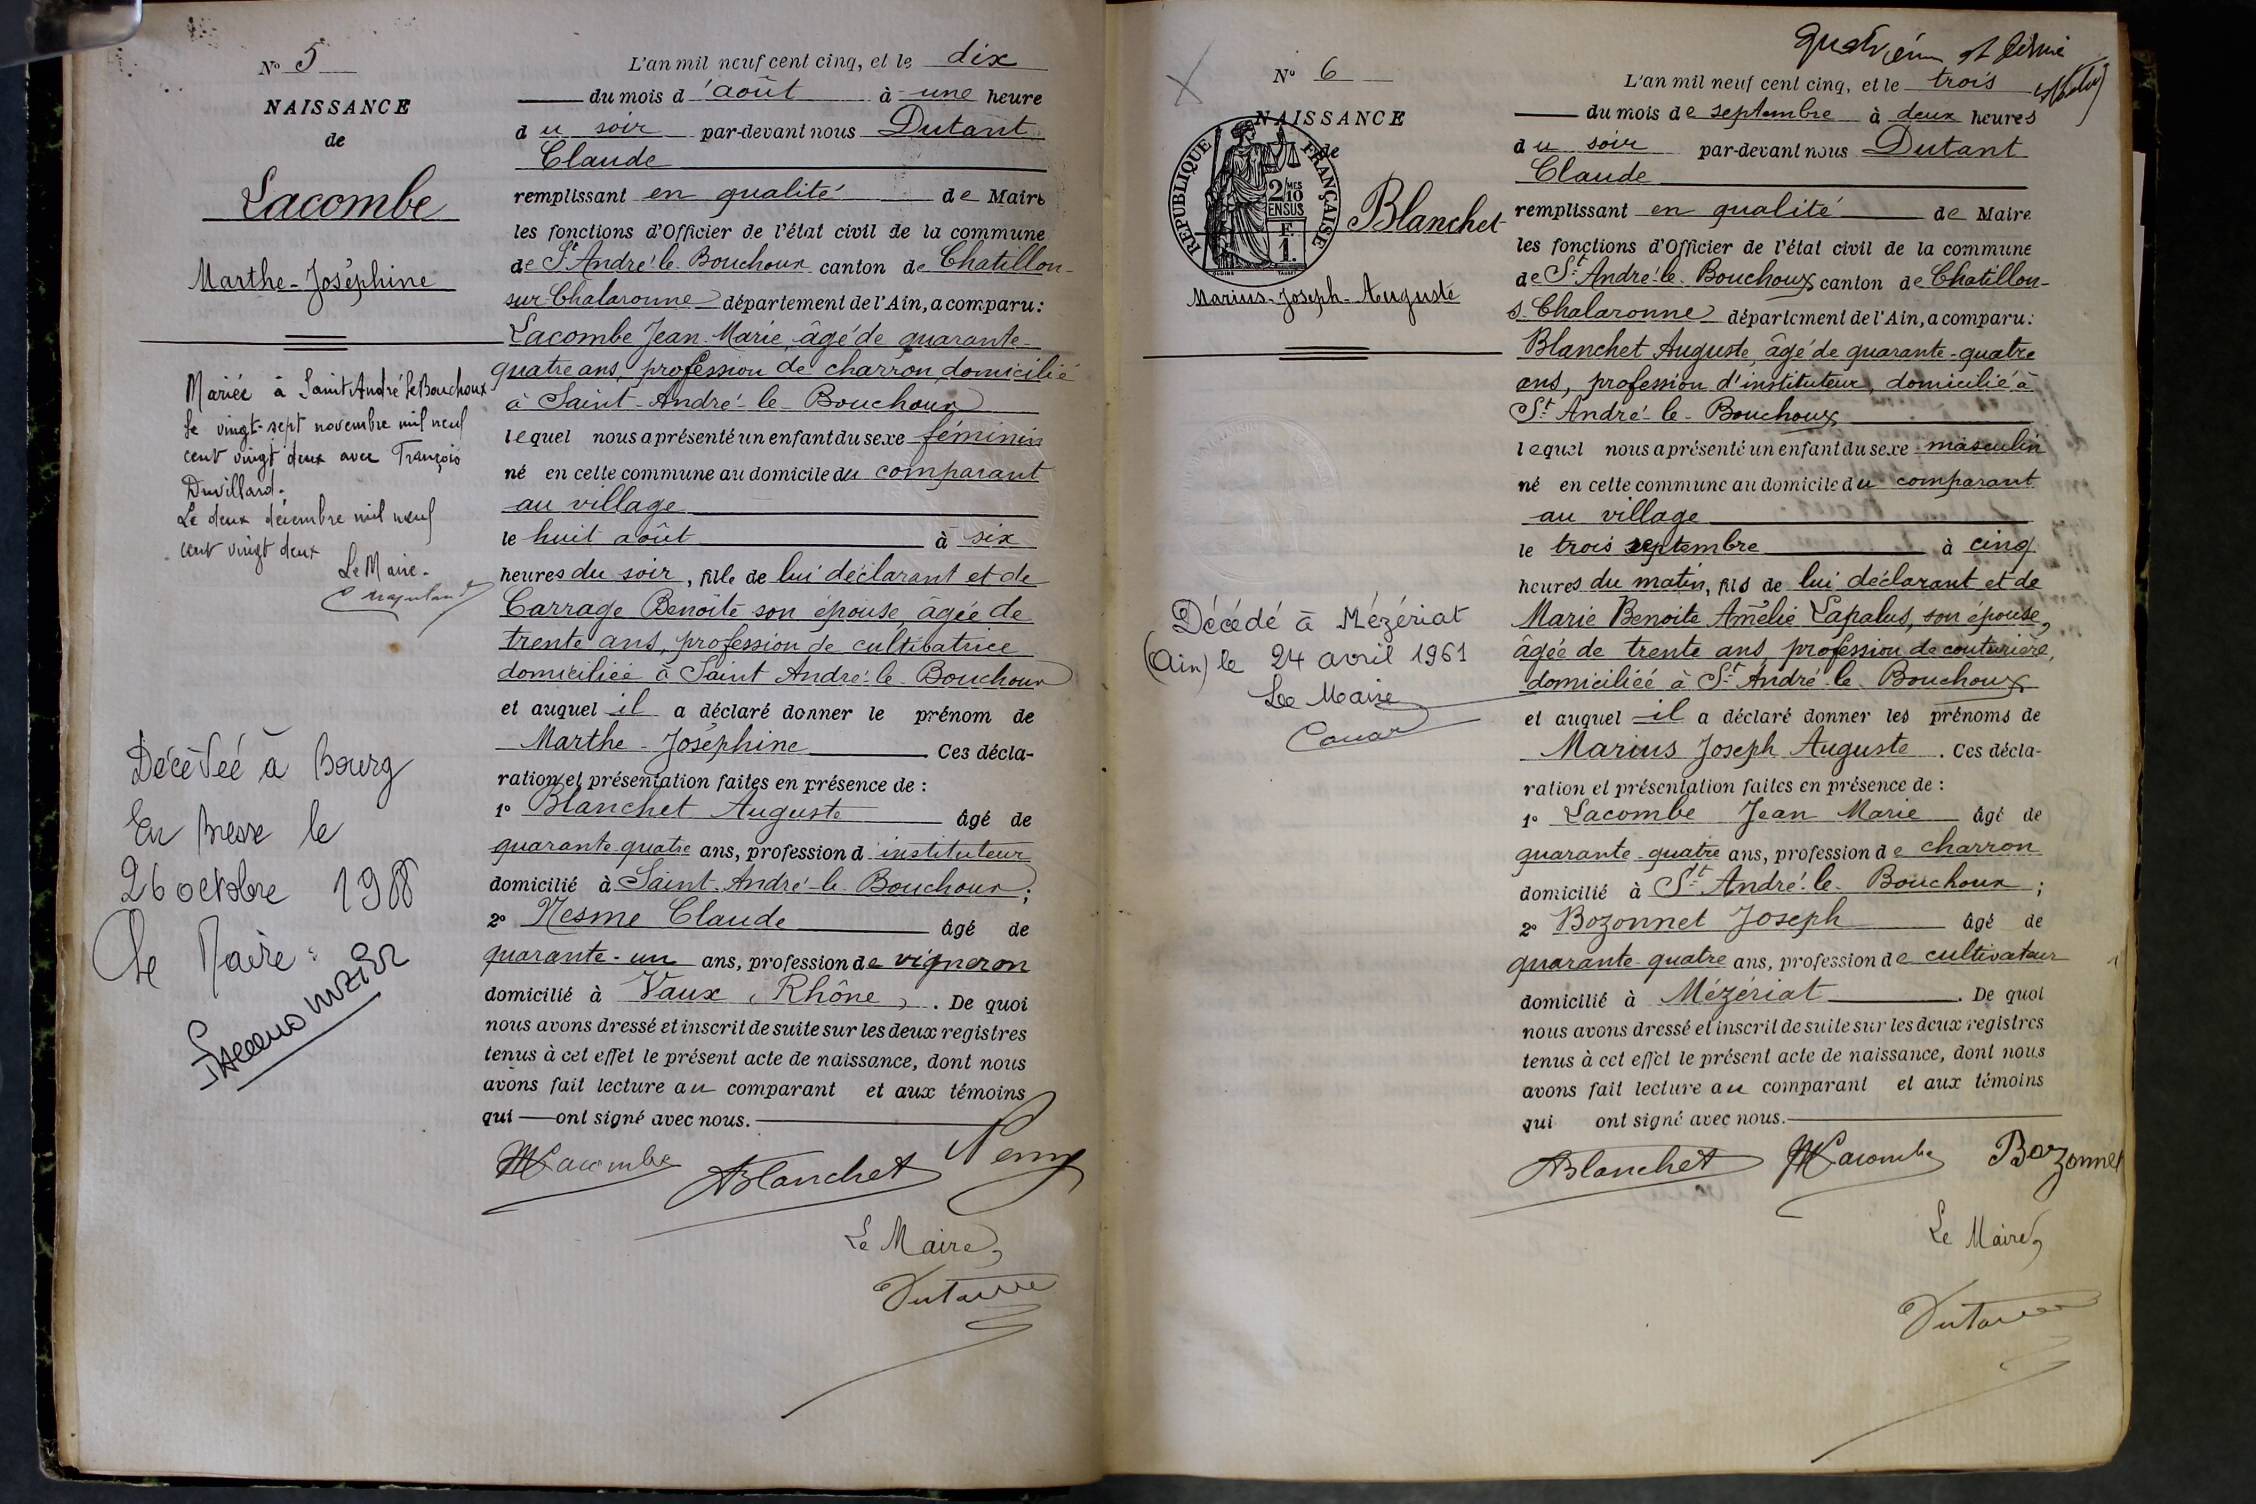 N° 5
NAISSANCE
de
Lacombe
Marthe-Joséphine
Mariée à Saint André le Bouchoux
le vingt-sept novembre mil neuf
cent vingt deux avec François
Duvillard.
Le deux décembre mil neuf
cent vingt deux
Le Maire.
Décédée à Bourg
En Bresse le
26 octobre 1988
Le Maire :
L'an mil neuf cent cinq, et le dix
du mois d'août à une heure
du soir par-devant nous Dutant
Claude
remplissant en qualité de Maire
les fonctions d'Officier de l'état civil de la commune
de St André-le-Bouchoux canton de Chatillon-
sur-Chalaronne département de l'Ain, a comparu :
Lacombe Jean-Marie, âgé de quarante-
quatre ans, profession de charron, domicilié
à Saint-André-le-Bouchoux
lequel nous a présenté un enfant du sexe féminin
né en cette commune au domicile du comparant
au village
le huit août à six
heures du soir, fille de lui déclarant et de
Carrage Benoîte son épouse, âgée de
trente ans, profession de cultivatrice
domiciliée à Saint André-le-Bouchoux
et auquel il a déclaré donner le prénom de
Marthe-Joséphine Ces décla-
ration et présentation faites en présence de :
1° Blanchet Auguste âgé de
quarante-quatre ans, profession d'instituteur
domicilié à Saint-André-le-Bouchoux ;
2° Nesme Claude âgé de
quarante-un ans, profession de vigneron
domicilié à Vaux (Rhône). De quoi
nous avons dressé et inscrit de suite sur les deux registres
tenus à cet effet le présent acte de naissance, dont nous
avons fait lecture au comparant et aux témoins
qui ont signé avec nous.
Lacombe ABlanchet
Le Maire,
Dutant
N° 6
NAISSANCE
de
RÉPUBLIQUE FRANÇAISE
2/10 MES
EN SUS
F.
1.
Blanchet
Marius-Joseph-Auguste
Décédé à Mézériat
(Ain) le 24 avril 1961
Le Maire
L'an mil neuf cent cinq, et le trois
du mois de septembre à deux heures
du soir par-devant nous Dutant
Claude
remplissant en qualité de Maire
les fonctions d'Officier de l'état civil de la commune
de St André-le-Bouchoux canton de Chatillon-
s-Chalaronne département de l'Ain, a comparu :
Blanchet Auguste, âgé de quarante-quatre
ans, profession d'instituteur, domicilié à
St André-le-Bouchoux
lequel nous a présenté un enfant du sexe masculin
né en cette commune au domicile du comparant
au village
le trois septembre à cinq
heures du matin, fils de lui déclarant et de
Marie Benoite Amélie Lapalus, son épouse,
âgée de trente ans, profession de couturière,
domiciliée à St André-le-Bouchoux
et auquel il a déclaré donner les prénoms de
Marius Joseph Auguste. Ces décla-
ration et présentation faites en présence de :
1° Lacombe Jean Marie âgé de
quarante-quatre ans, profession de charron
domicilié à St André-le-Bouchoux ;
2° Bozonnet Joseph âgé de
quarante-quatre ans, profession de cultivateur
domicilié à Mézériat. De quoi
nous avons dressé et inscrit de suite sur les deux registres
tenus à cet effet le présent acte de naissance, dont nous
avons fait lecture au comparant et aux témoins
qui ont signé avec nous.
ABlanchet Lacombe Bozonnet
Le Maire,
Dutant